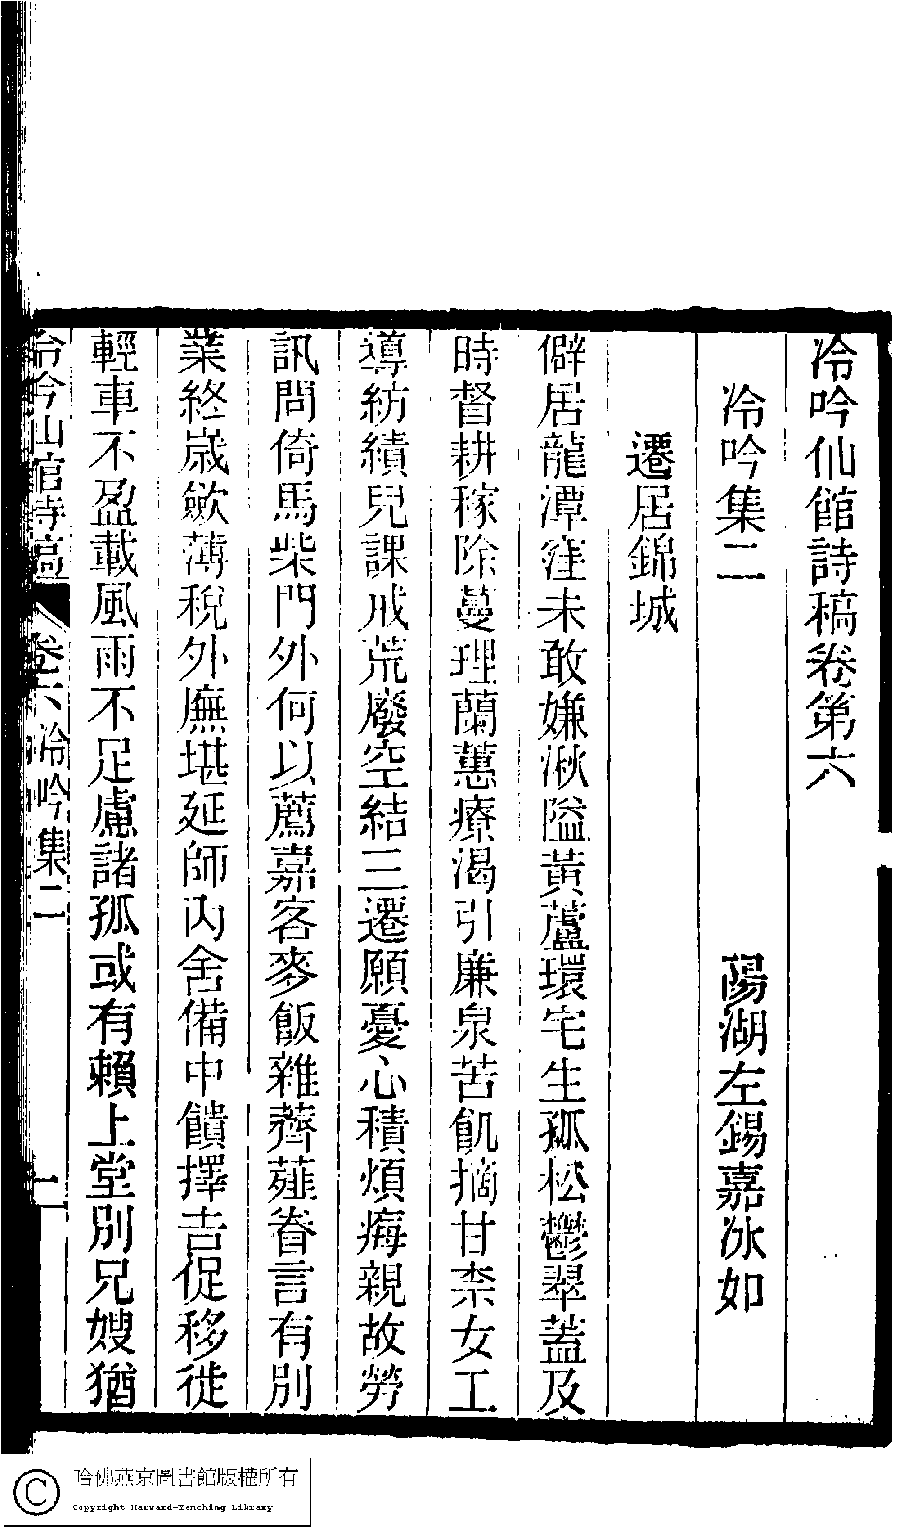 冷吟仙館詩稿卷第六
冷吟集二 陽湖左錫嘉冰如
遷居錦城
僻居龍潭窪未敢嫌湫隘黃蘆環宅生孤松鬱翠蓋及
時督耕稼除蔓理蘭蕙療渴引廉泉苦飢摘甘柰女工
導紡績兒課戒荒廢空結三遷願憂心積煩痗親故勞
訊問倚馬柴門外何以薦嘉客麥飯雜薺薤眷言有別
業終歲歛薄稅外廡堪延師內舍備中饋擇吉促移徙
輕車不盈載風雨不足慮諸孤或有賴上堂別兄嫂猶
冷吟仙館詩稿 卷六冷吟集二 一
哈佛燕京圖書館版權所有
Copyright Harvard-Yenching Library